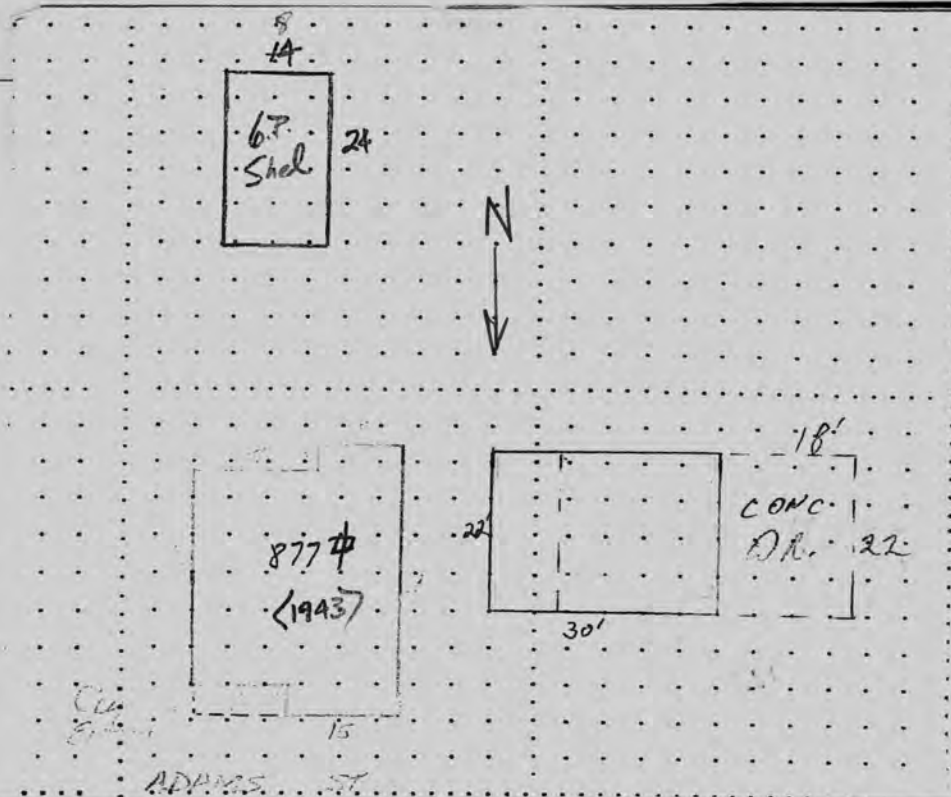 8
14
Shed
24
N
18'
CONC
DR. 22
22'
877
(1943)
30'
15
ADAMS ST